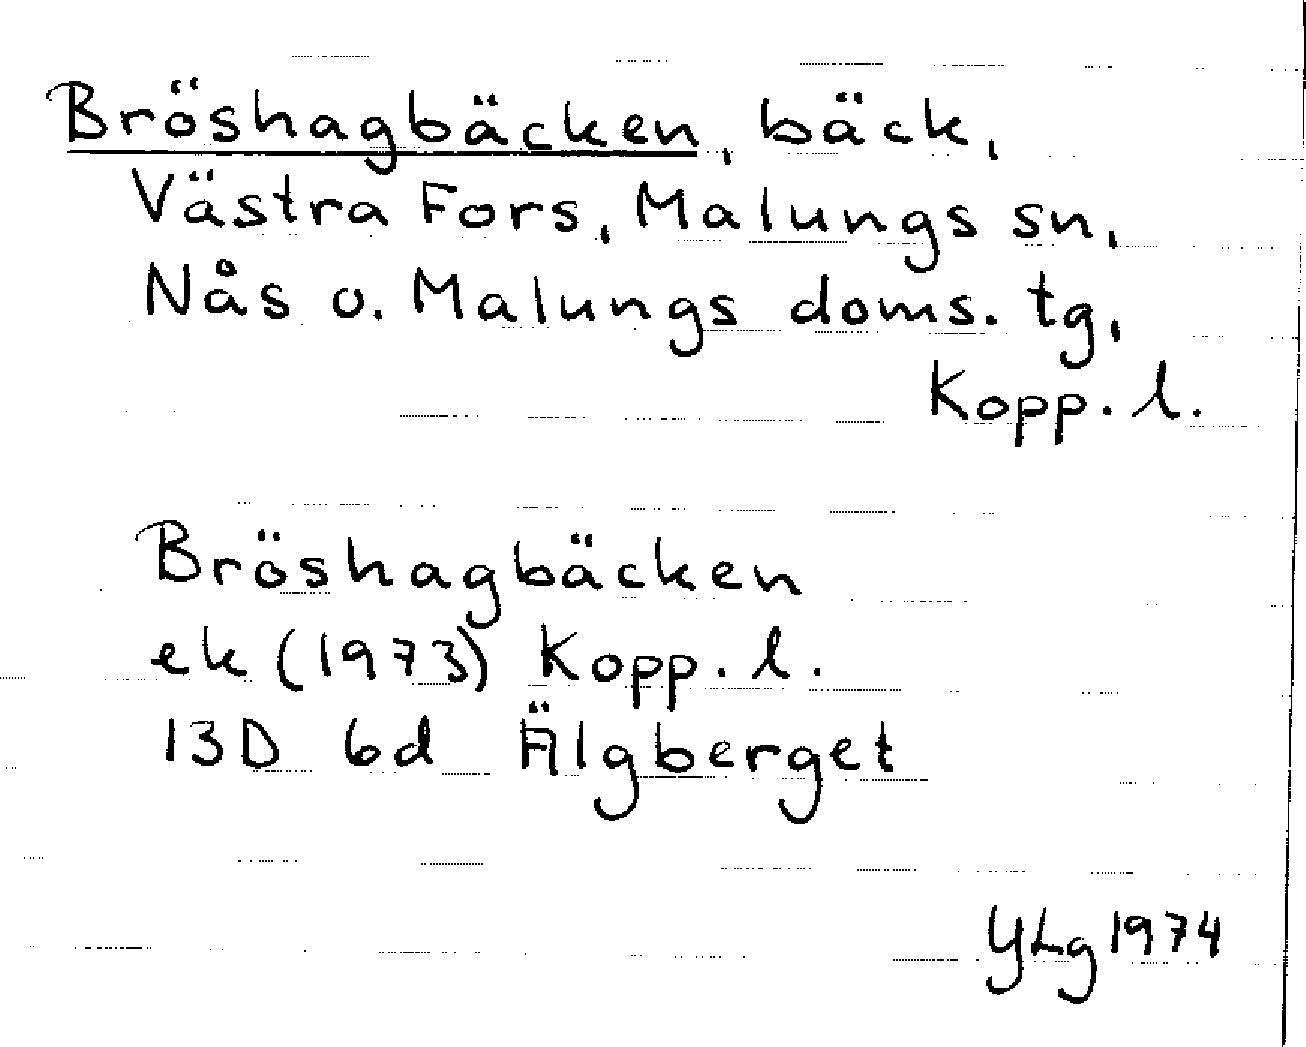 Bröshagbäcken, bäck,
Västra Fors, Malungs sn,
Nås o. Malungs doms. tg,
Kopp. l.
Bröshagbäcken
ek (1973) Kopp. l.
13D 6d Älgberget
YLg 1974